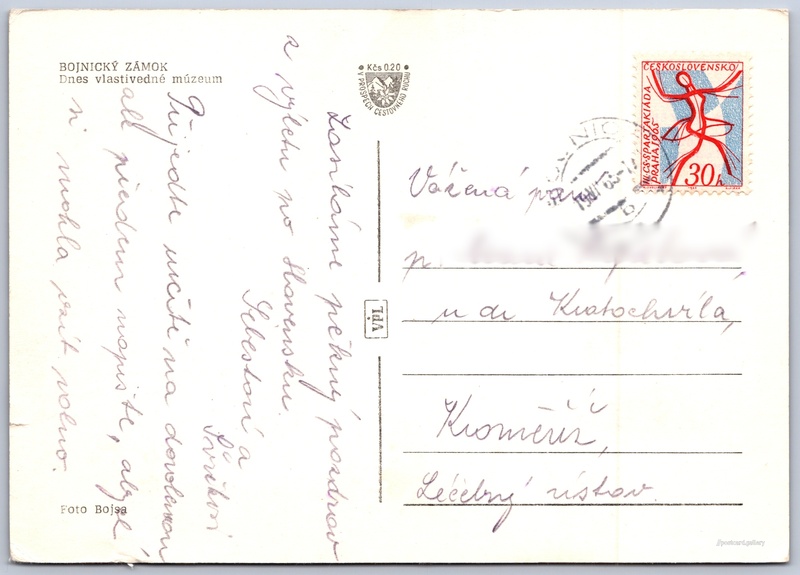 BOJNICKÝ ZÁMOK
Dnes vlastivedné múzeum
Kčs 0.20
V PROSPECH CESTOVNÉHO RUCHU
Zasíláme pěkný pozdrav
z výletu po Slovensku.
Šebestovi a
Přijedte určitě na dovolenou
ale předem napište, abych
si mohla vzít volno.
VpL
ČESKOSLOVENSKO
III. CS. SPARTAKIÁDA
PRAHA 1965
30h
Vážená
p.
u dr Kratochvíla,
Kroměříž,
Léčebný ústav.
Foto Bojsa